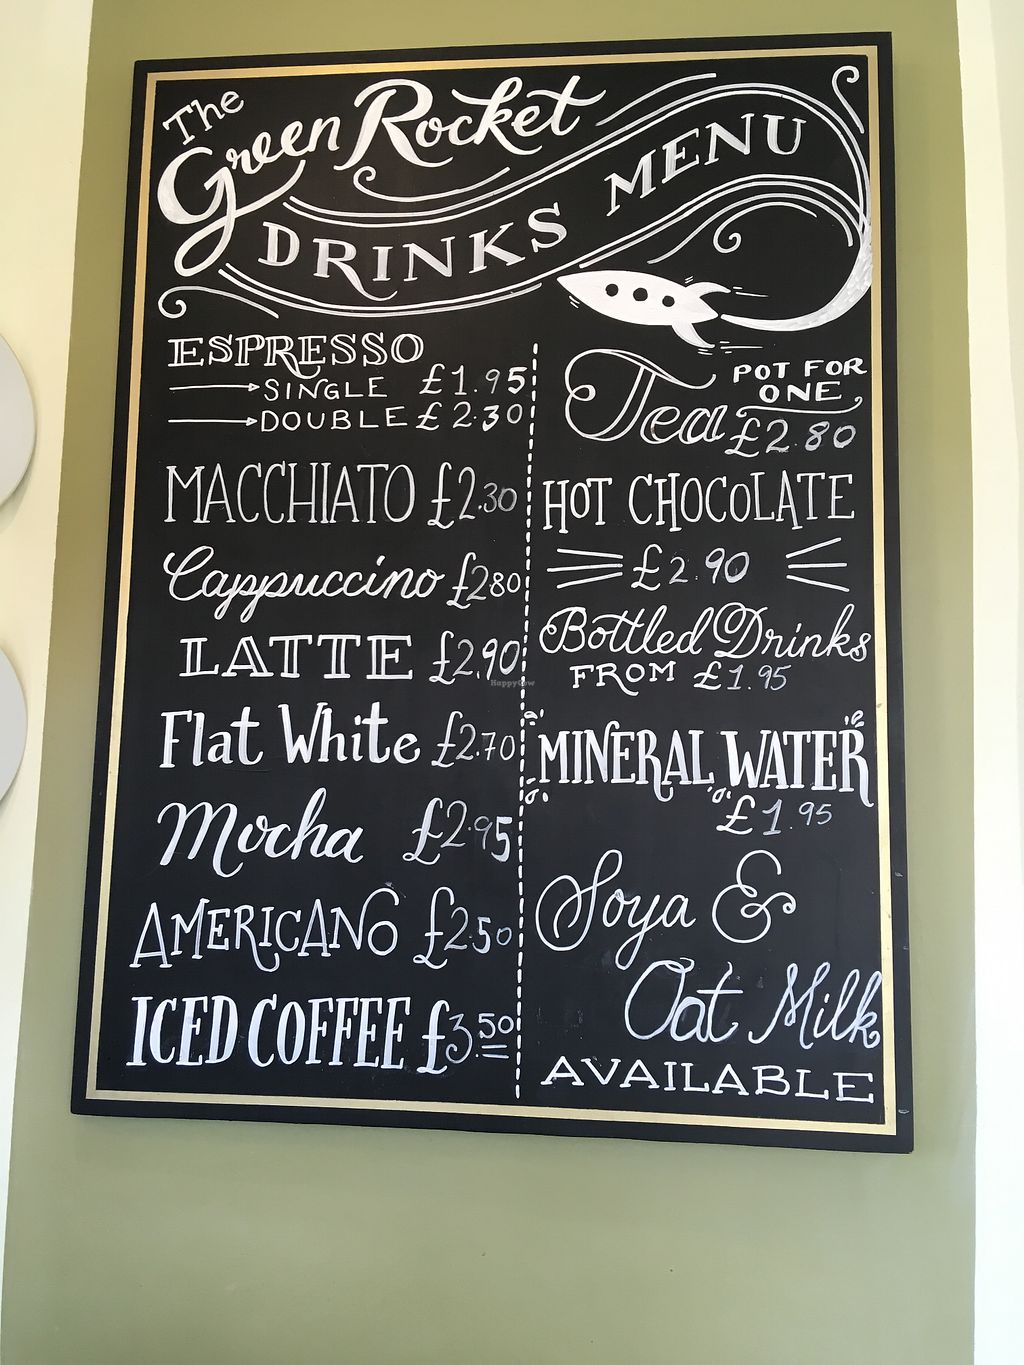 The
Green Rocket
DRINKS MENU
ESPRESSO
SINGLE £1.95
DOUBLE £2.30
MACCHIATO £2.30
Cappuccino £2.80
LATTE £2.90
Flat White £2.70
Mocha £2.95
AMERICANO £2.50
ICED COFFEE £3.50
Tea POT FOR
ONE
£2.80
HOT CHOCOLATE
£2.90
Bottled Drinks
FROM £1.95
MINERAL WATER
£1.95
Soya &
Oat Milk
AVAILABLE
HappyCow